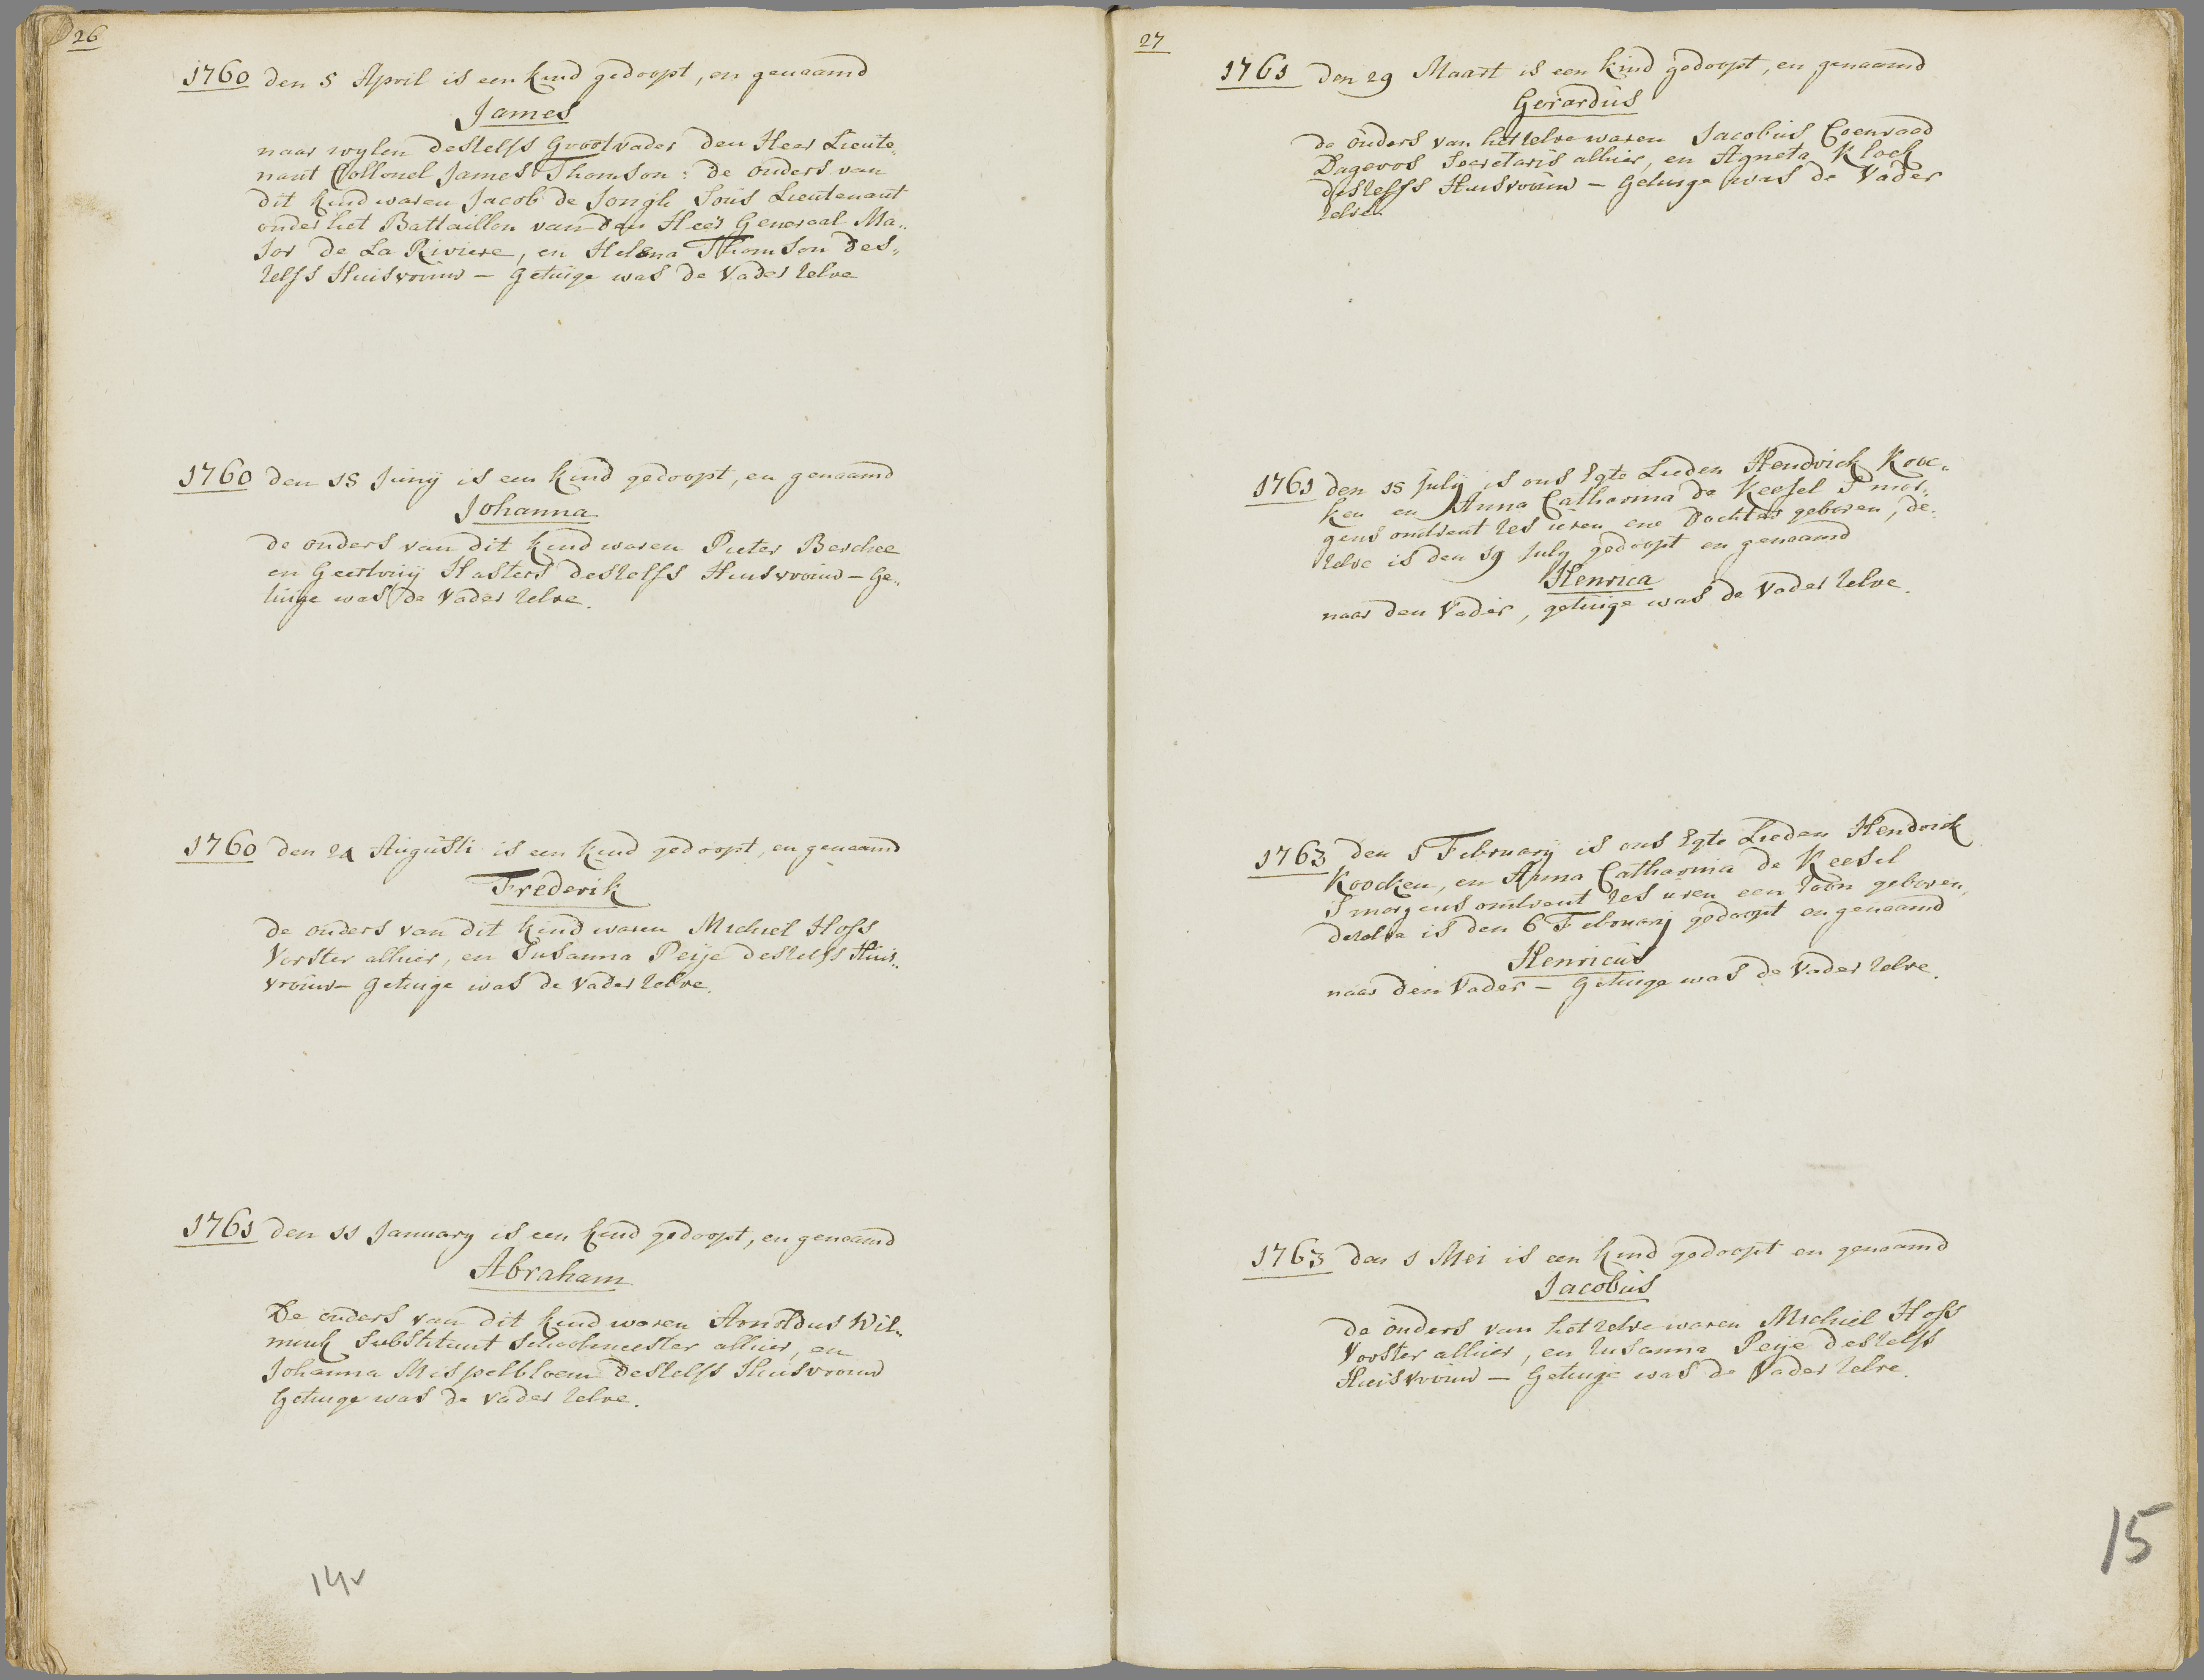 26
1760 den 5 April is een kind gedoopt, en genaamd
James
naar wylen deszelfs Grootvader den Heer Lieute„
nant Collonel James Thomson: de ouders van
dit kind waren Jacob de Jongh Sous Lieutenant
onder het Battaillon van den Heer Generaal Ma„
jor de La Riviere, en Helena Thomson des„
zelfs Huisvrouw – getuige was de Vader zelve
1760 den 15 Junij is een kind gedoopt, en genaamd
Johanna
de ouders van dit kind waren Pieter Berchee
en Geertruij Hasters deszelfs Huisvrouw – Ge„
tuige was de Vader zelve.
1760 den 24 Augusti is een kind gedoopt, en genaamd
Frederik
de ouders van dit kind waren Michiel Hoss
Vorster alhier, en Susanna Peije deszelfs Huis„
vrouw – getuige was de Vader zelve.
1761 den 11 January is een kind gedoopt, en genaamd
Abraham
De ouders van dit kind waren Arnoldus Wil„
mink Substituut Schoolmeester alhier, en
Johanna Mispelbloem deszelfs Huisvrouw
Getuige was de Vader zelve.
14v
27
1761 den 29 Maart is een kind gedoopt, en genaamd
Gerardus
de ouders van het zelve waren Jacobus Coenraad
Dagevos Secretaris alhier, en Agneta Klock
deszelfs Huisvrouw – Getuige was de Vader
zelve.
1761 den 15 July is ons Egte Lieden Hendrick Koc„
ken en Anna Catharina de Keesel S mor„
gens omtrent zes uren ene Dochter geboren, de„
zelve is den 19 July gedoopt en genaamd
Henrica
naar den Vader, getuige was de Vader zelve.
1763 den 1 February is ons Egte Lieden Hendrick
Koocken, en Anna Catharina de Keesel
S morgens omtrent zes uren een zoon geboren,
dezelve is den 6 February gedoopt en genaamd
Henricus
naar den Vader – Getuige was de Vader zelve.
1763 den 1 Mei is een kind gedoopt en genaamd
Jacobus
de ouders van het zelve waren Michiel Hoss
Vorster alhier, en Susanna Peije deszelfs
Huisvrouw – Getuige was de Vader zelve.
15